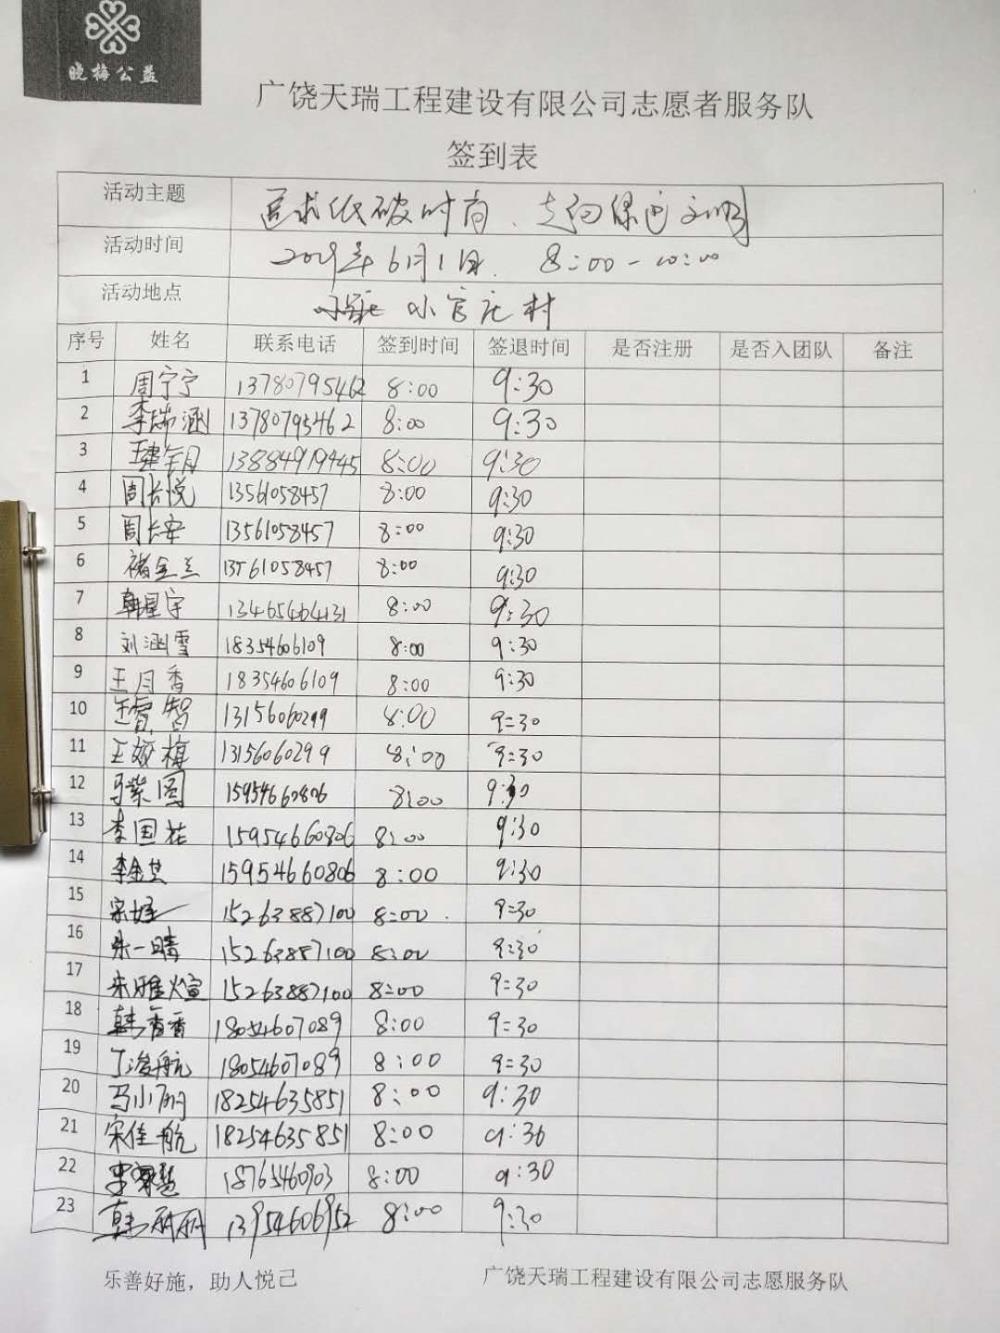 晓梅公益
广饶天瑞工程建设有限公司志愿者服务队
签到表
活动主题 追求低破时尚、走向绿色文明
活动时间 2019年6月1日. 8:00-10:00
活动地点 小官庄村
序号 姓名 联系电话 签到时间 签退时间 是否注册 是否入团队 备注
1 周宁宁 13780795462 8:00 9:30
2 李瑞涵 13780795462 8:00 9:30
3 13884919445 8:00 9:30
4 周长悦 13561058457 8:00 9:30
5 周长安 13561058457 8:00 9:30
6 褚金兰 13561058457 8:00 9:30
7 韩星宇 13465464131 8:00 9:30
8 刘涵雪 18354606109 8:00 9:30
9 王月香 18354606109 8:00 9:30
10 王睿智 13156060299 8:00 9:30
11 王姣梅 13156060299 8:00 9:30
12 15954660806 8:00 9:30
13 李国花 15954660806 8:00 9:30
14 15954660806 8:00 9:30
15 15263887100 8:00 9:30
16 朱一晴 15263887100 8:00 9:30
17 朱雅煊 15263887100 8:00 9:30
18 韩香香 18054607089 8:00 9:30
19 丁浚航 18054607089 8:00 9:30
20 马小丽 18254635851 8:00 9:30
21 宋佳航 18254635851 8:00 9:30
22 18765460903 8:00 9:30
23 韩丽丽 13954606952 8:00 9:30
乐善好施，助人悦己 广饶天瑞工程建设有限公司志愿服务队